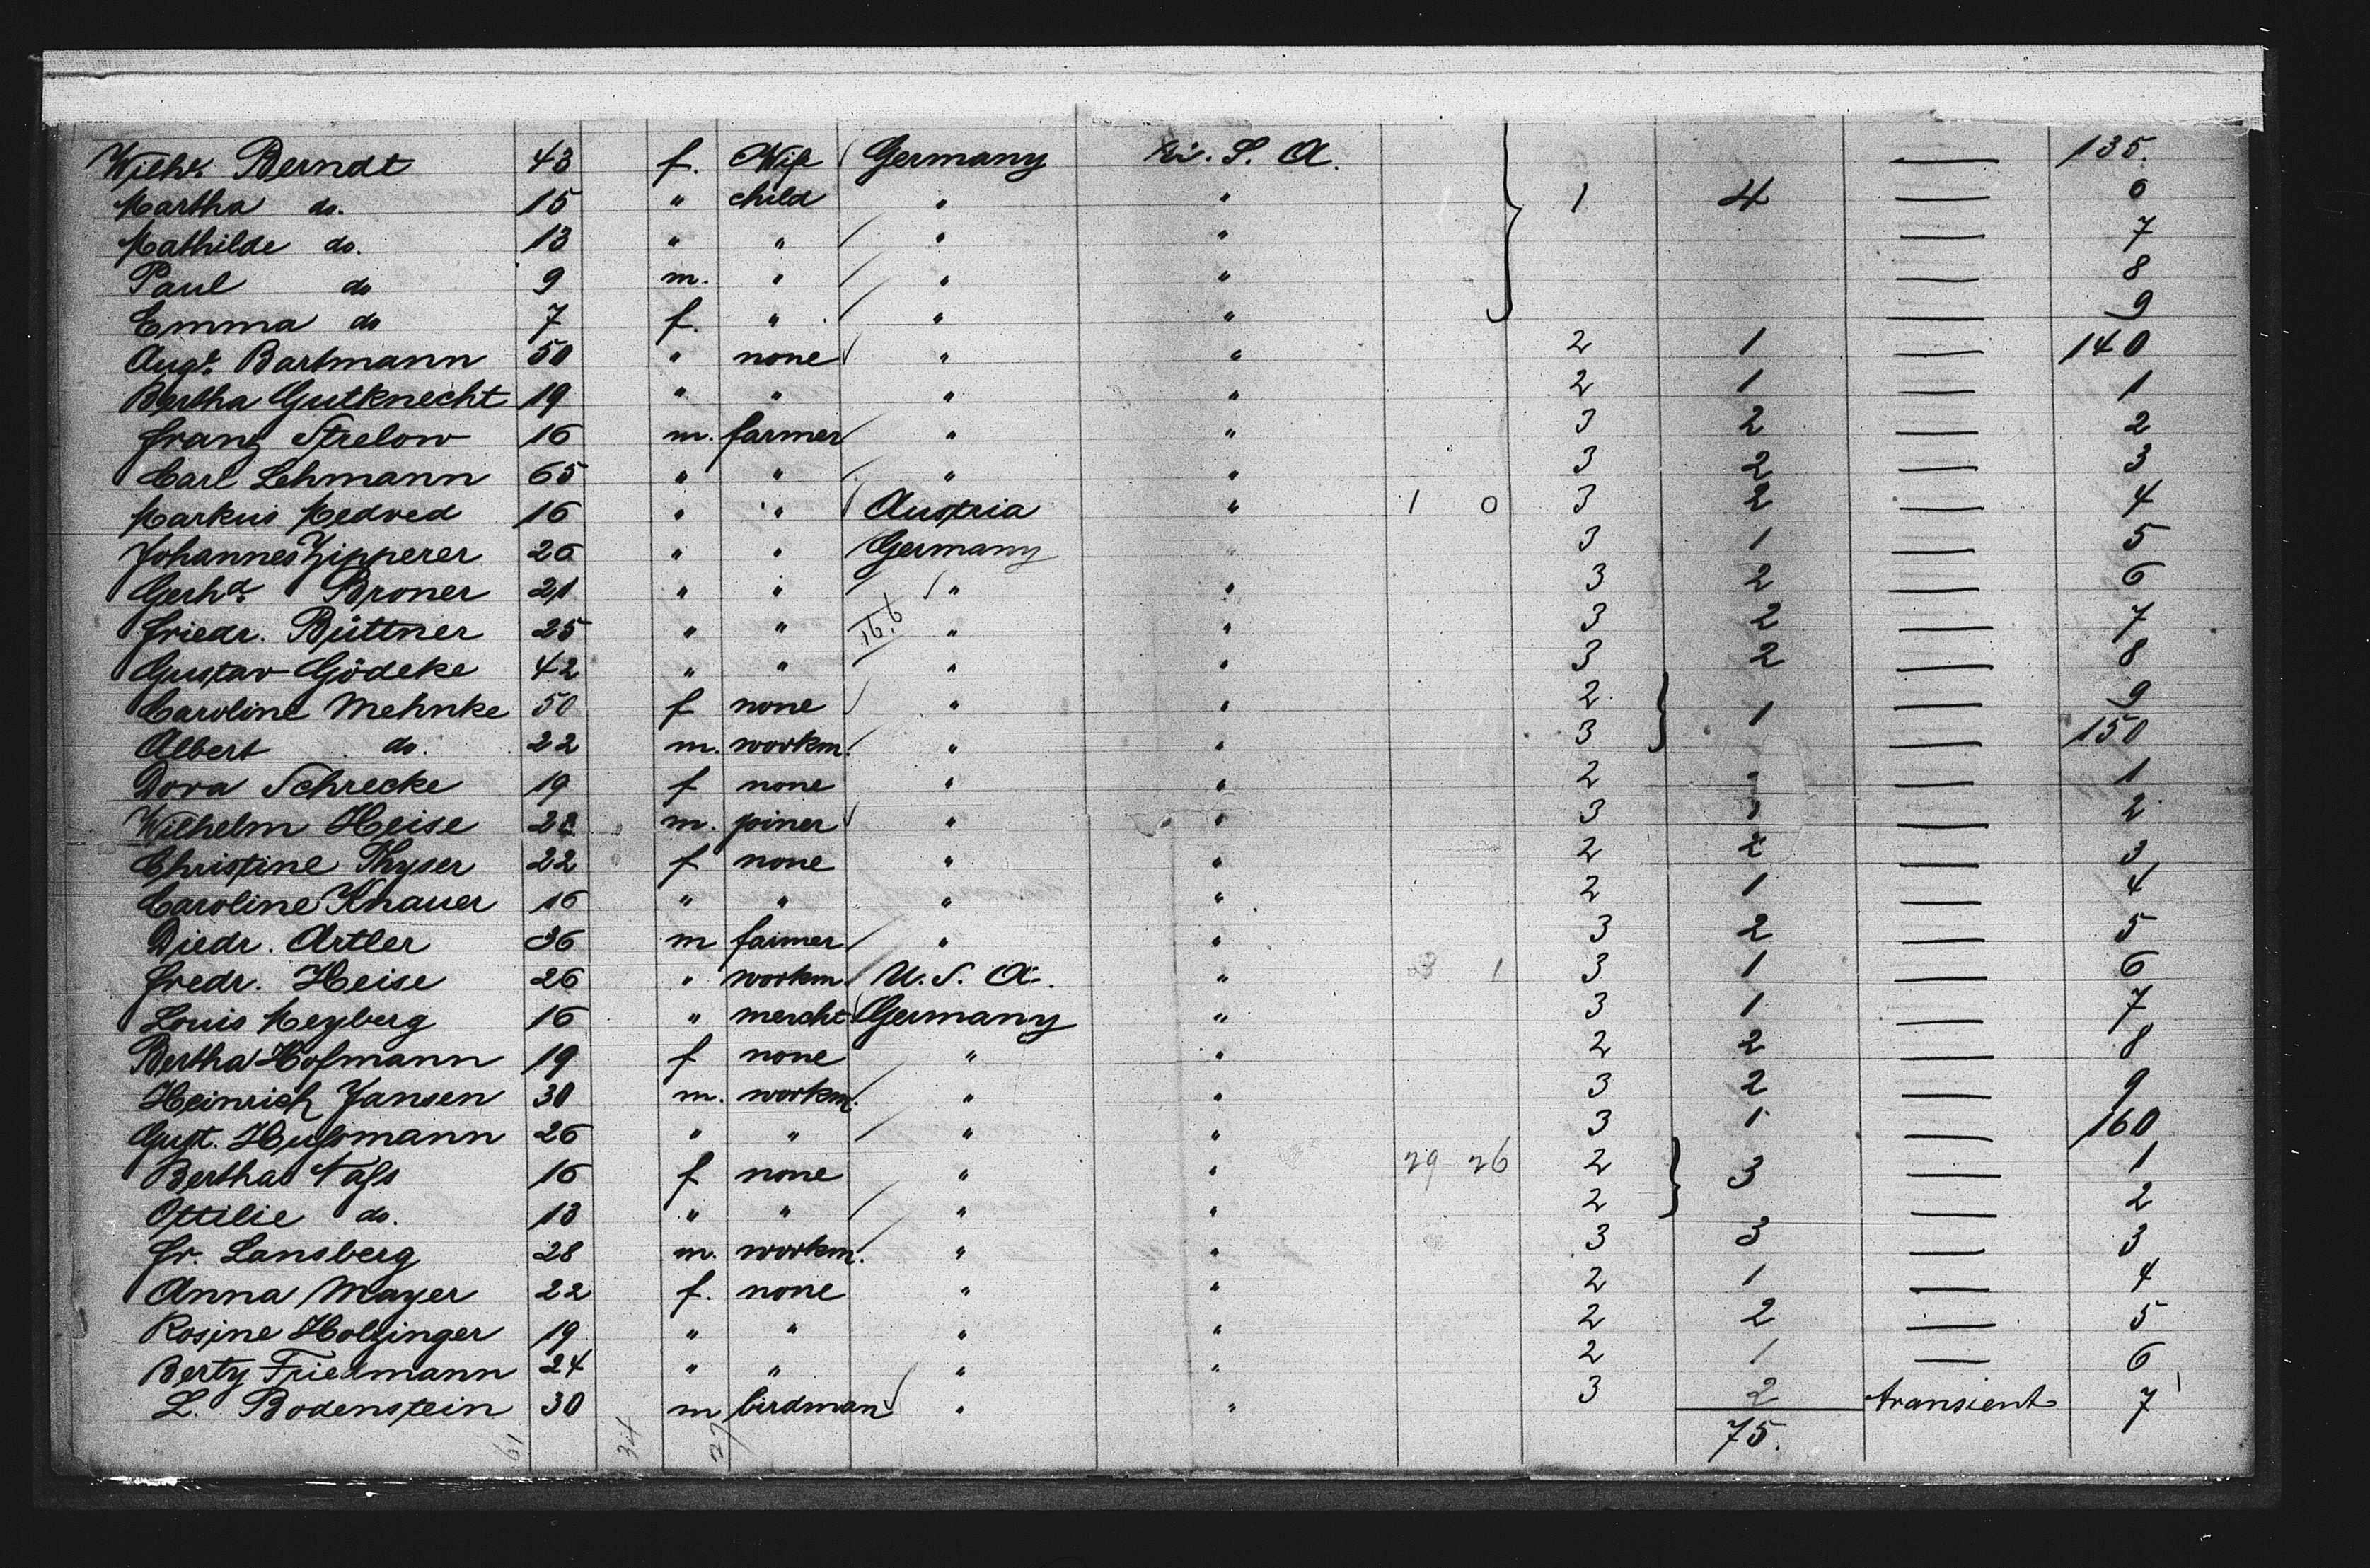 Wilh. Berndt 43 f. Wife Germany U. S. A. 135.
Martha do. 15 " child " " 1 4 6
Mathilde do. 13 " " " " 7
Paul do 9 m. " " " 8
Emma do 7 f. " " " 9
Augt. Bartmann 50 " none " " 2 1 140
Bertha Gutknecht 19 " " " " 2 1 1
Franz Strelow 16 m. farmer " " 3 2 2
Carl Lehmann 65 " " " " 3 2 3
Markus Medved 16 " " Austria " 1 0 3 2 4
Johannes Zipperer 26 " " Germany " 3 1 5
Gerhd. Broner 21 " " " " 3 2 6
Friedr. Büttner 25 " " " " 3 2 7
Gustav Gödeke 42 " " " " 3 2 8
Caroline Mehnke 50 f none " " 2 1 9
Albert do. 22 m. workm. " " 3 150
Dora Schrecke 19 f none " " 2 1
Wilhelm Heise 28 m. joiner " " 3 1 2
Christine Thyser 22 f none " " 2 2 3
Caroline Knauer 16 " " " " 2 1 4
Diedr. Artler 36 m farmer " " 3 2 5
Fredr. Heise 26 " workm U. S. A. " 1 3 1 6
Louis Meyberg 16 " mercht Germany " 3 1 7
Bertha Hofmann 19 f none " " 2 2 8
Heinrich Jansen 30 m. workm. " " 3 2 9
Gust. Hußmann 26 " " " " 3 1 160
Bertha Naß 16 f none " " 79 76 2 3 1
Ottilie do. 13 " " " " 2 2
Fr. Lansberg 28 m. workm. " " 3 3 3
Anna Mayer 22 f. none " " 2 1 4
Rosine Holzinger 19 " " " " 2 2 5
Berty Friedmann 24 " " " " 2 1 6
L. Bodenstein 30 m birdman " " 3 2 transient 7
61 34 27 75.